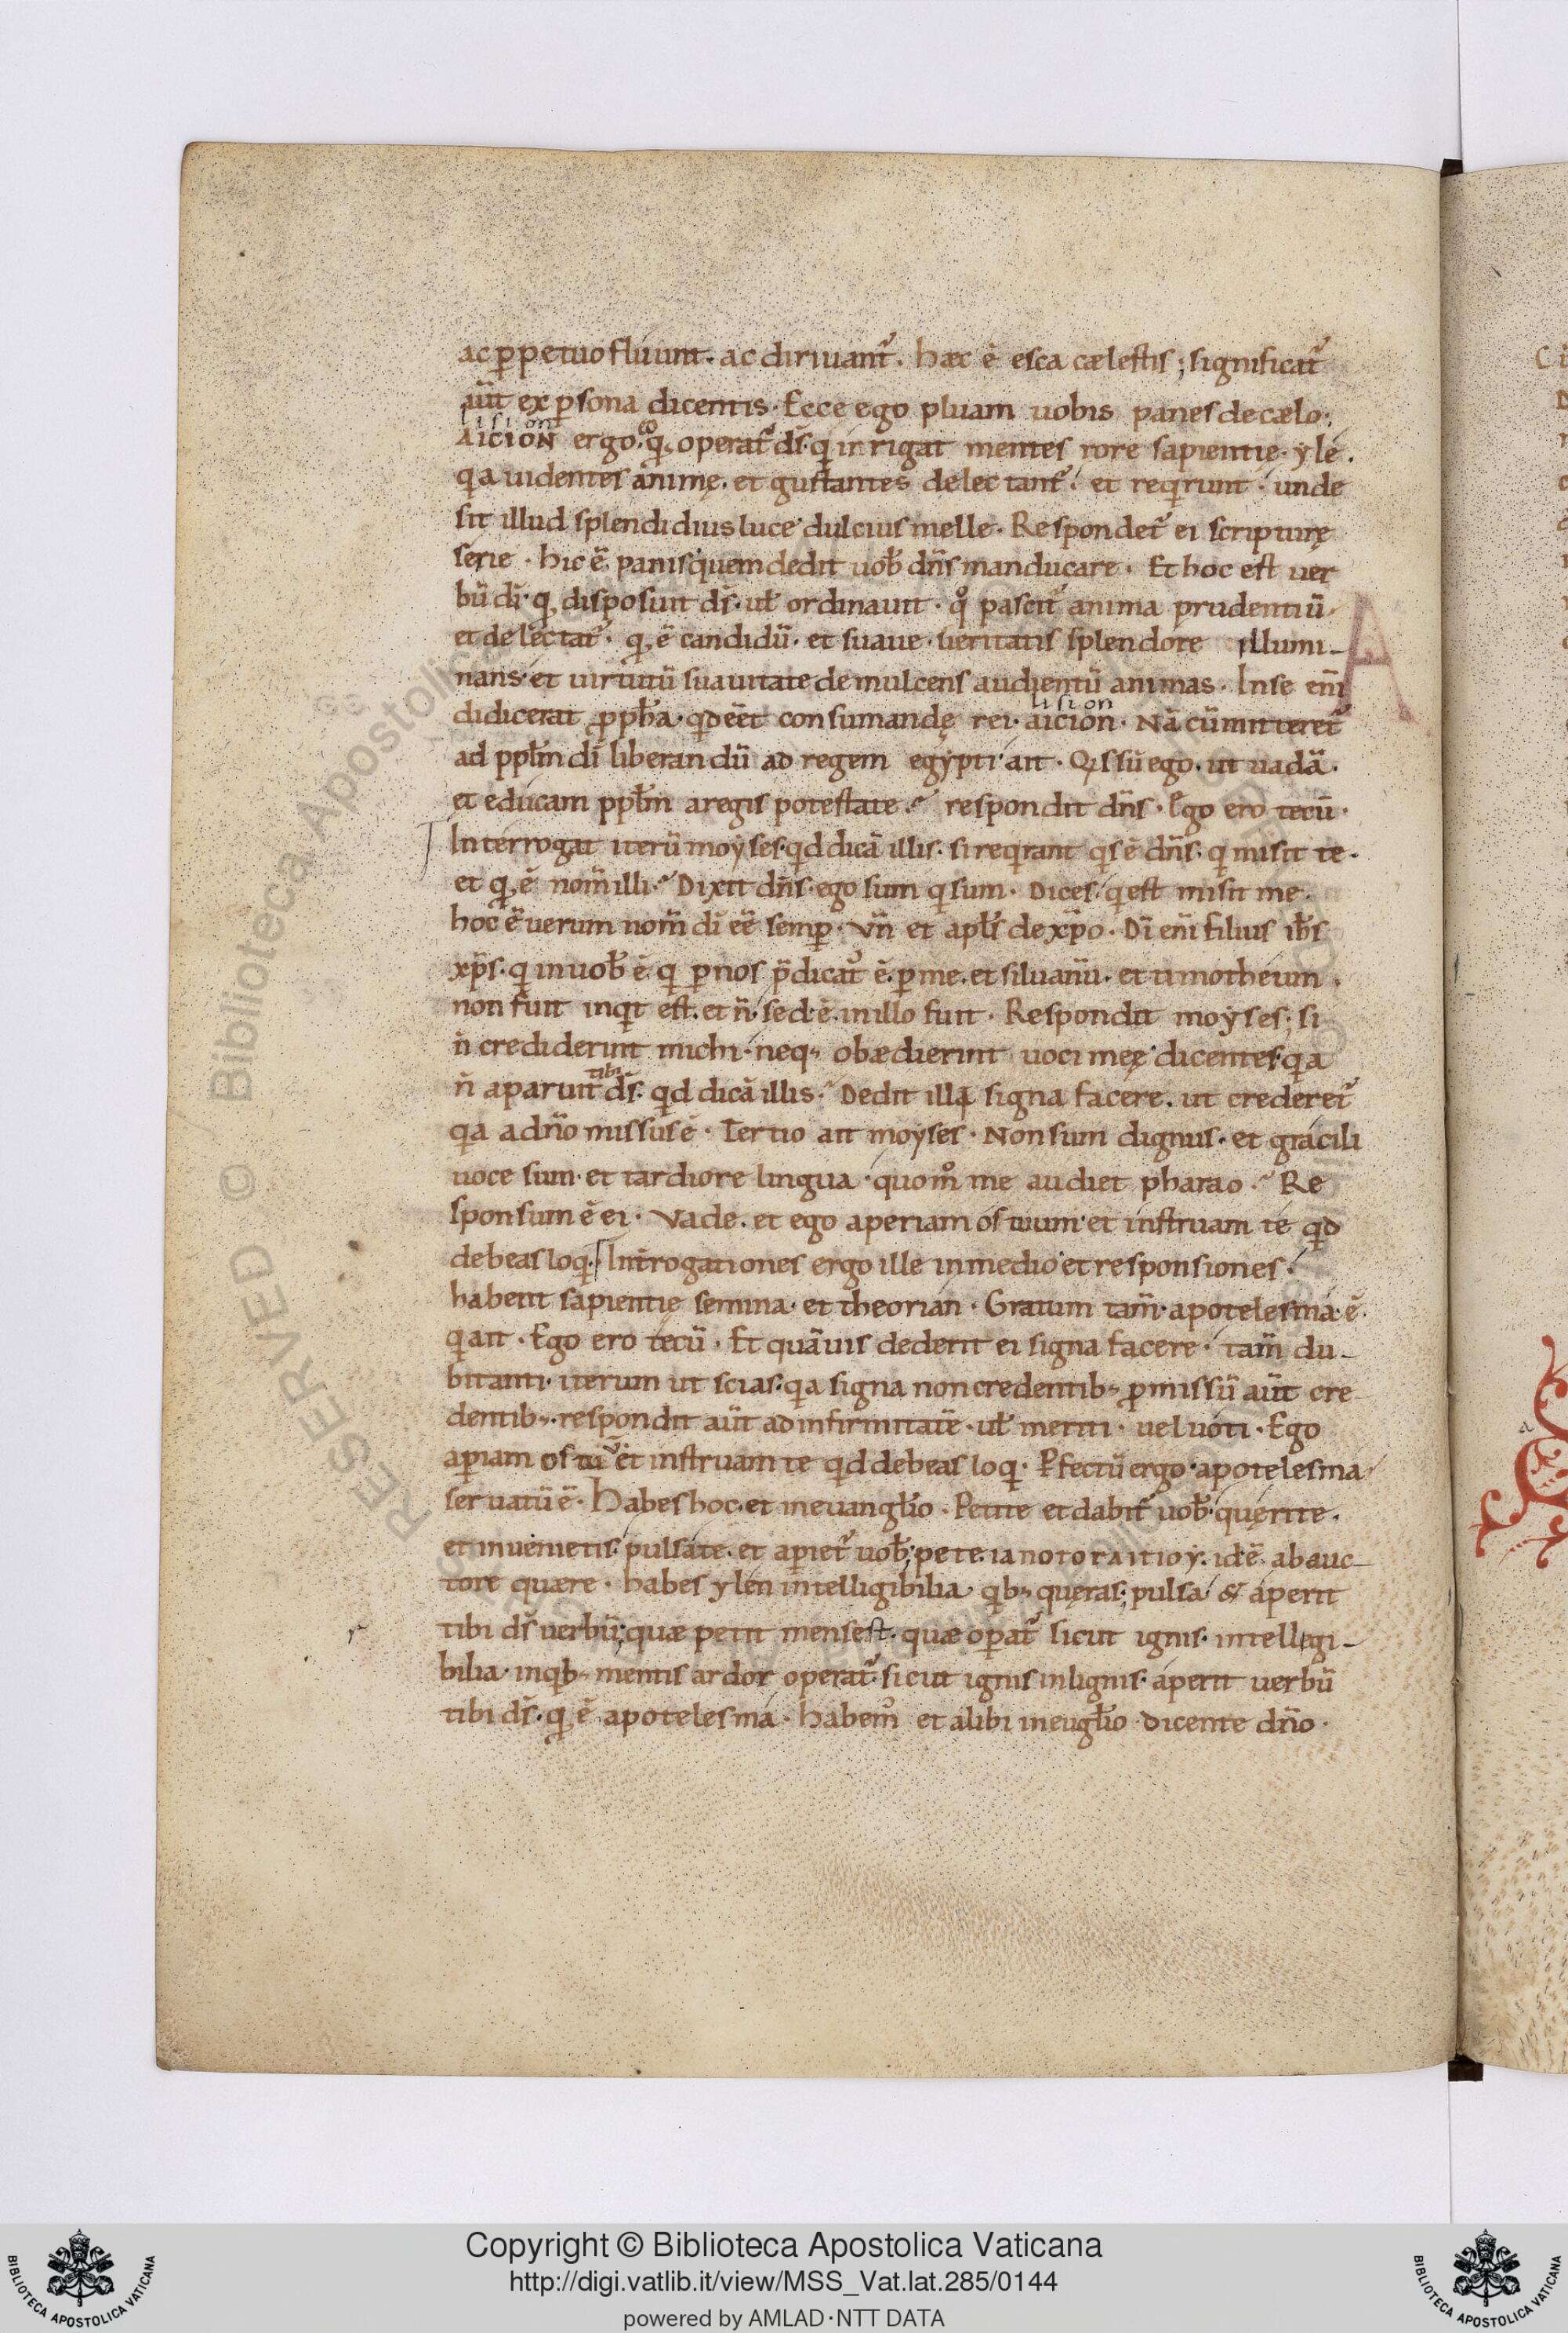 ac ꝑpetuo fluunt. ac diriuant᷑. hæc ē esca cælestis; significat᷑
aūt ex ꝑsona dicentis. Ecce ego pluam uobis panes de cælo.
lision
AICION ergo. qđ operat᷑ dš. q irrigat mentes rore sapientię. yle.
qa uidentes animę. et gustantes delectant᷑. et reqrunt. unde
sit illud splendidius luce dulcius melle. Respondet᷑ ei scripturę
serie. hic ē panis quem dedit uob̄ dn̄s manducare. Et hoc est uer
bū dī. qđ disposuit dš. ul̄ ordinauit. qͦ pascit᷑ anima prudentiū.
et delectat᷑. qđ ē candidū. et suaue. ueritatis splendore illumi-
nans. et uirtutū suauitate demulcens audientū animas. In se enī
lision
didicerat ꝓpħa. qđ eēt consumandę rei. aicion. Nā cū mitteret᷑
ad pplm̄ dī liberandū ad regem egypti. ait. Qs sū ego. ut uadā.
et educam pplm̄ a regis potestate. respondit dn̄s. Ego ero tecū.
Interrogat iterū moyses. qd dicā illis. si reqrant qs ē dn̄s. q misit te.
et qđ ē nom̄ illi. Dixit dn̄s. ego sum q sum. Dices. q est misit me.
hoc ē uerum nom̄ dī eē semꝑ. Vn̄ et apl̄s de xp̄o. Dī enī filius ih̄s
xp̄s. q in uob̄ ē. q ꝑ nos p̄dicat᷑ ē. ꝑ me. et siluanū. et timotheum.
non fuit inqt est. et n̄. sed. ē. in illo fuit. Respondit moyses; si
n̄ crediderint michi. neq; obædierint uoci meę dicentes. qa
tibi
n̄ aparuit dš. qd dicā illis. Dedit illi signa facere. ut crederet᷑
qa a dn̄o missus ē. Tertio ait moyses. Non sum dignus. et gracili
uoce sum. et tardiore lingua. quom̊ me audiet pharao. Re
sponsum ē ei. Vade. et ego aperiam os tuum. et instruam te qđ
debeas loqi. Int̄rogationes ergo ille in medio et responsiones.
habent sapientię semina. et theorian. Gratum tam̄. apotelesma. ē.
q ait. Ego ero tecū. Et quāuis dederit ei signa facere. tam̄ du-
bitanti. iterum ut scias. qa signa non credentib; ꝓmissū aūt cre
dentib;. respondit aūt ad infirmitatē. ul̄ meriti. uel uoti. Ego
aꝑiam os tuū et instruam te qd debeas loqi. Ꝑfectū ergo. apotelesma
seruatū ē. Habes hoc. et in euangl̄io. Petite et dabit᷑ uob̄. quęrite.
et inuenietis. pulsate. et aꝑiet᷑ uob̄; pete. ianotoraitioy. id ē. ab auc-
tore quære. habes ylen intelligibilia. qb; quęras; pulsa. & aperit
tibi dš uerbū; quæ petit mens est. quæ oꝑat᷑ sicut ignis. intelligi-
bilia. in qb; mentis ardor operat᷑. sicut ignis in lignis. aperit uerbū
tibi dš. qđ ē apotelesma. habem᷒ et alibi in eugl̄io. dicente dn̄o.
A
Copyright © Biblioteca Apostolica Vaticana
http://digi.vatlib.it/view/MSS_Vat.lat.285/0144
powered by AMLAD·NTT DATA
BIBLIOTECA APOSTOLICA VATICANA
BIBLIOTECA APOSTOLICA VATICANA